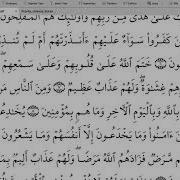 عَلَىٰ هُدًى مِّن رَّبِّهِمْ وَأُو۟لَٰٓئِكَ هُمُ ٱلْمُفْلِحُونَ
كَفَرُوا۟ سَوَآءٌ عَلَيْهِمْ ءَأَنذَرْتَهُمْ أَمْ لَمْ
خَتَمَ ٱللَّهُ عَلَىٰ قُلُوبِهِمْ وَعَلَىٰ سَمْعِهِمْ
غِشَٰوَةٌ وَلَهُمْ عَذَابٌ عَظِيمٌ ۝ وَمِنَ ٱلنَّاسِ
بِٱللَّهِ وَبِٱلْيَوْمِ ٱلْءَاخِرِ وَمَا هُم بِمُؤْمِنِينَ ۝
ءَامَنُوا۟ وَمَا يَخْدَعُونَ إِلَّآ أَنفُسَهُمْ وَمَا يَشْعُرُونَ
مَّرَضٌ فَزَادَهُمُ ٱللَّهُ مَرَضًا وَلَهُمْ عَذَابٌ